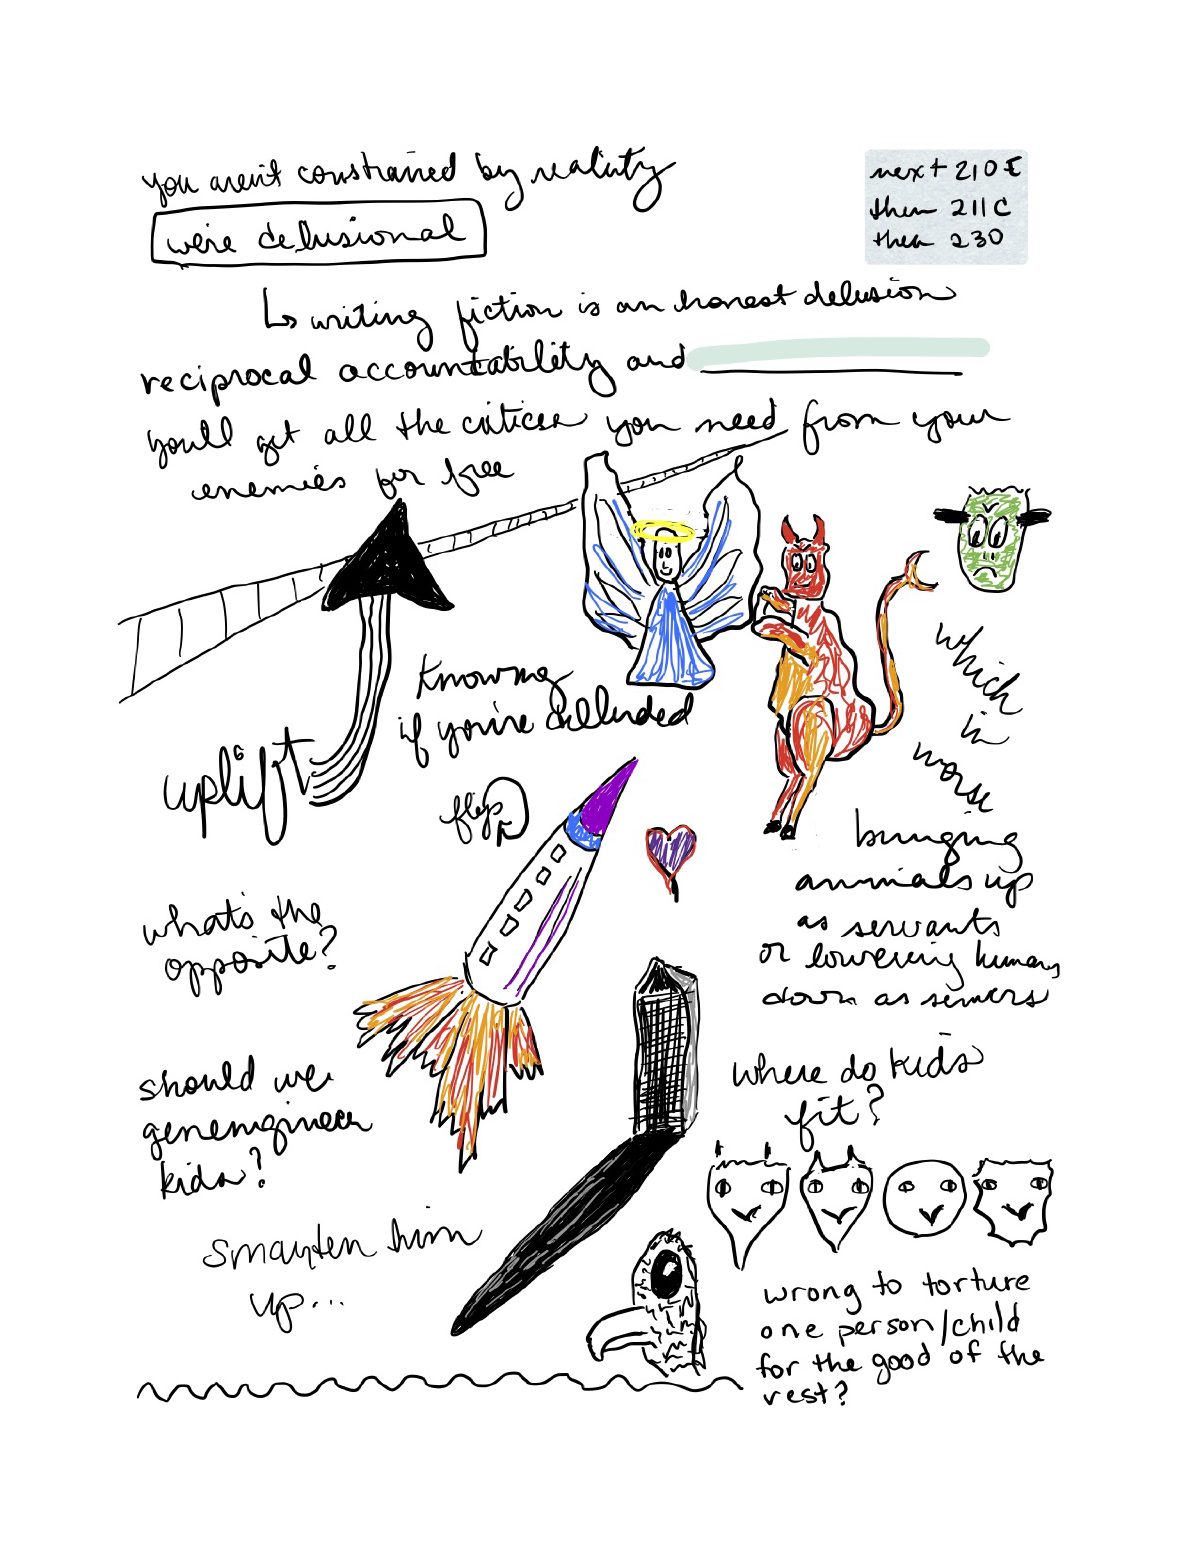 you aren't constrained by reality
we're delusional
next 210E
then 211C
then 230
↳ writing fiction is an honest delusion
reciprocal accountability and
you'll get all the criticism you need from your
enemies for free
Knowing
if you're dellunded
uplift
flips
which
is
worse
bringing
animals up
as servants
or lowering humans
down as
what's the
opposite?
should we
genengineer
kids?
where do kids
fit?
smarten him
up...
wrong to torture
one person/child
for the good of the
rest?